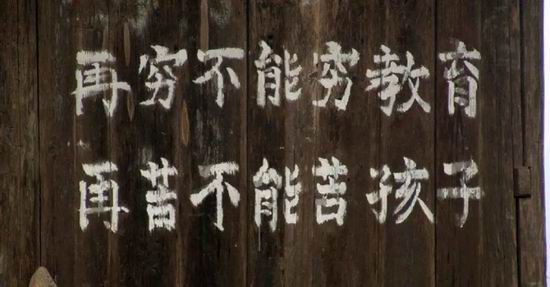 再穷不能穷教育
再苦不能苦孩子